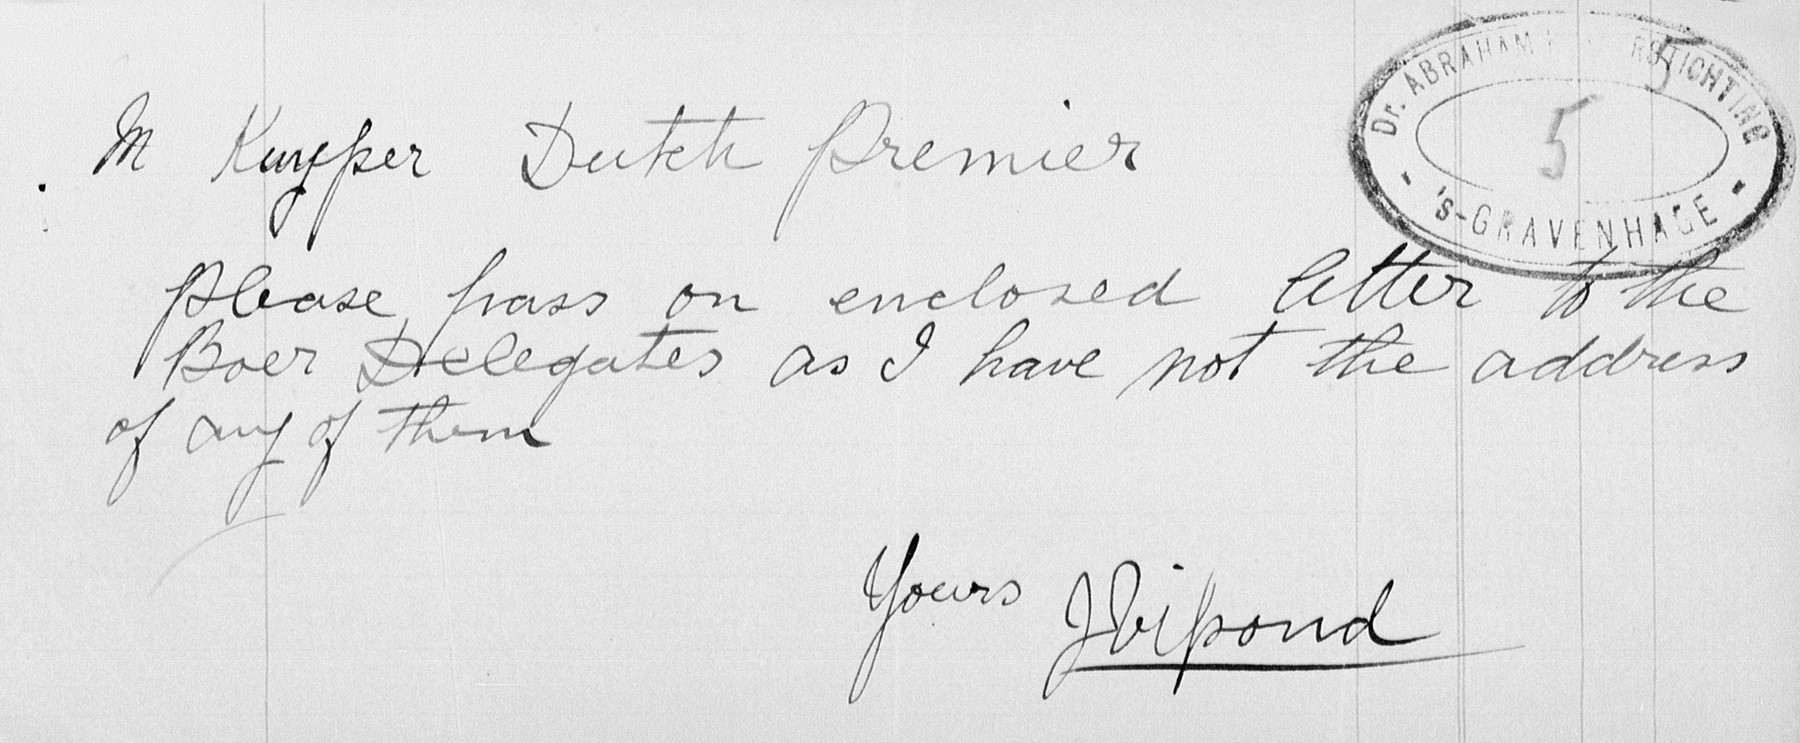 M Kuyper Dutch Premier
Please pass on enclosed letter to the
Boer Delegates as I have not the address
of any of them
Yours JVipond
Dr. ABRAHAM RSTICHTING
5
5
's-GRAVENHAGE